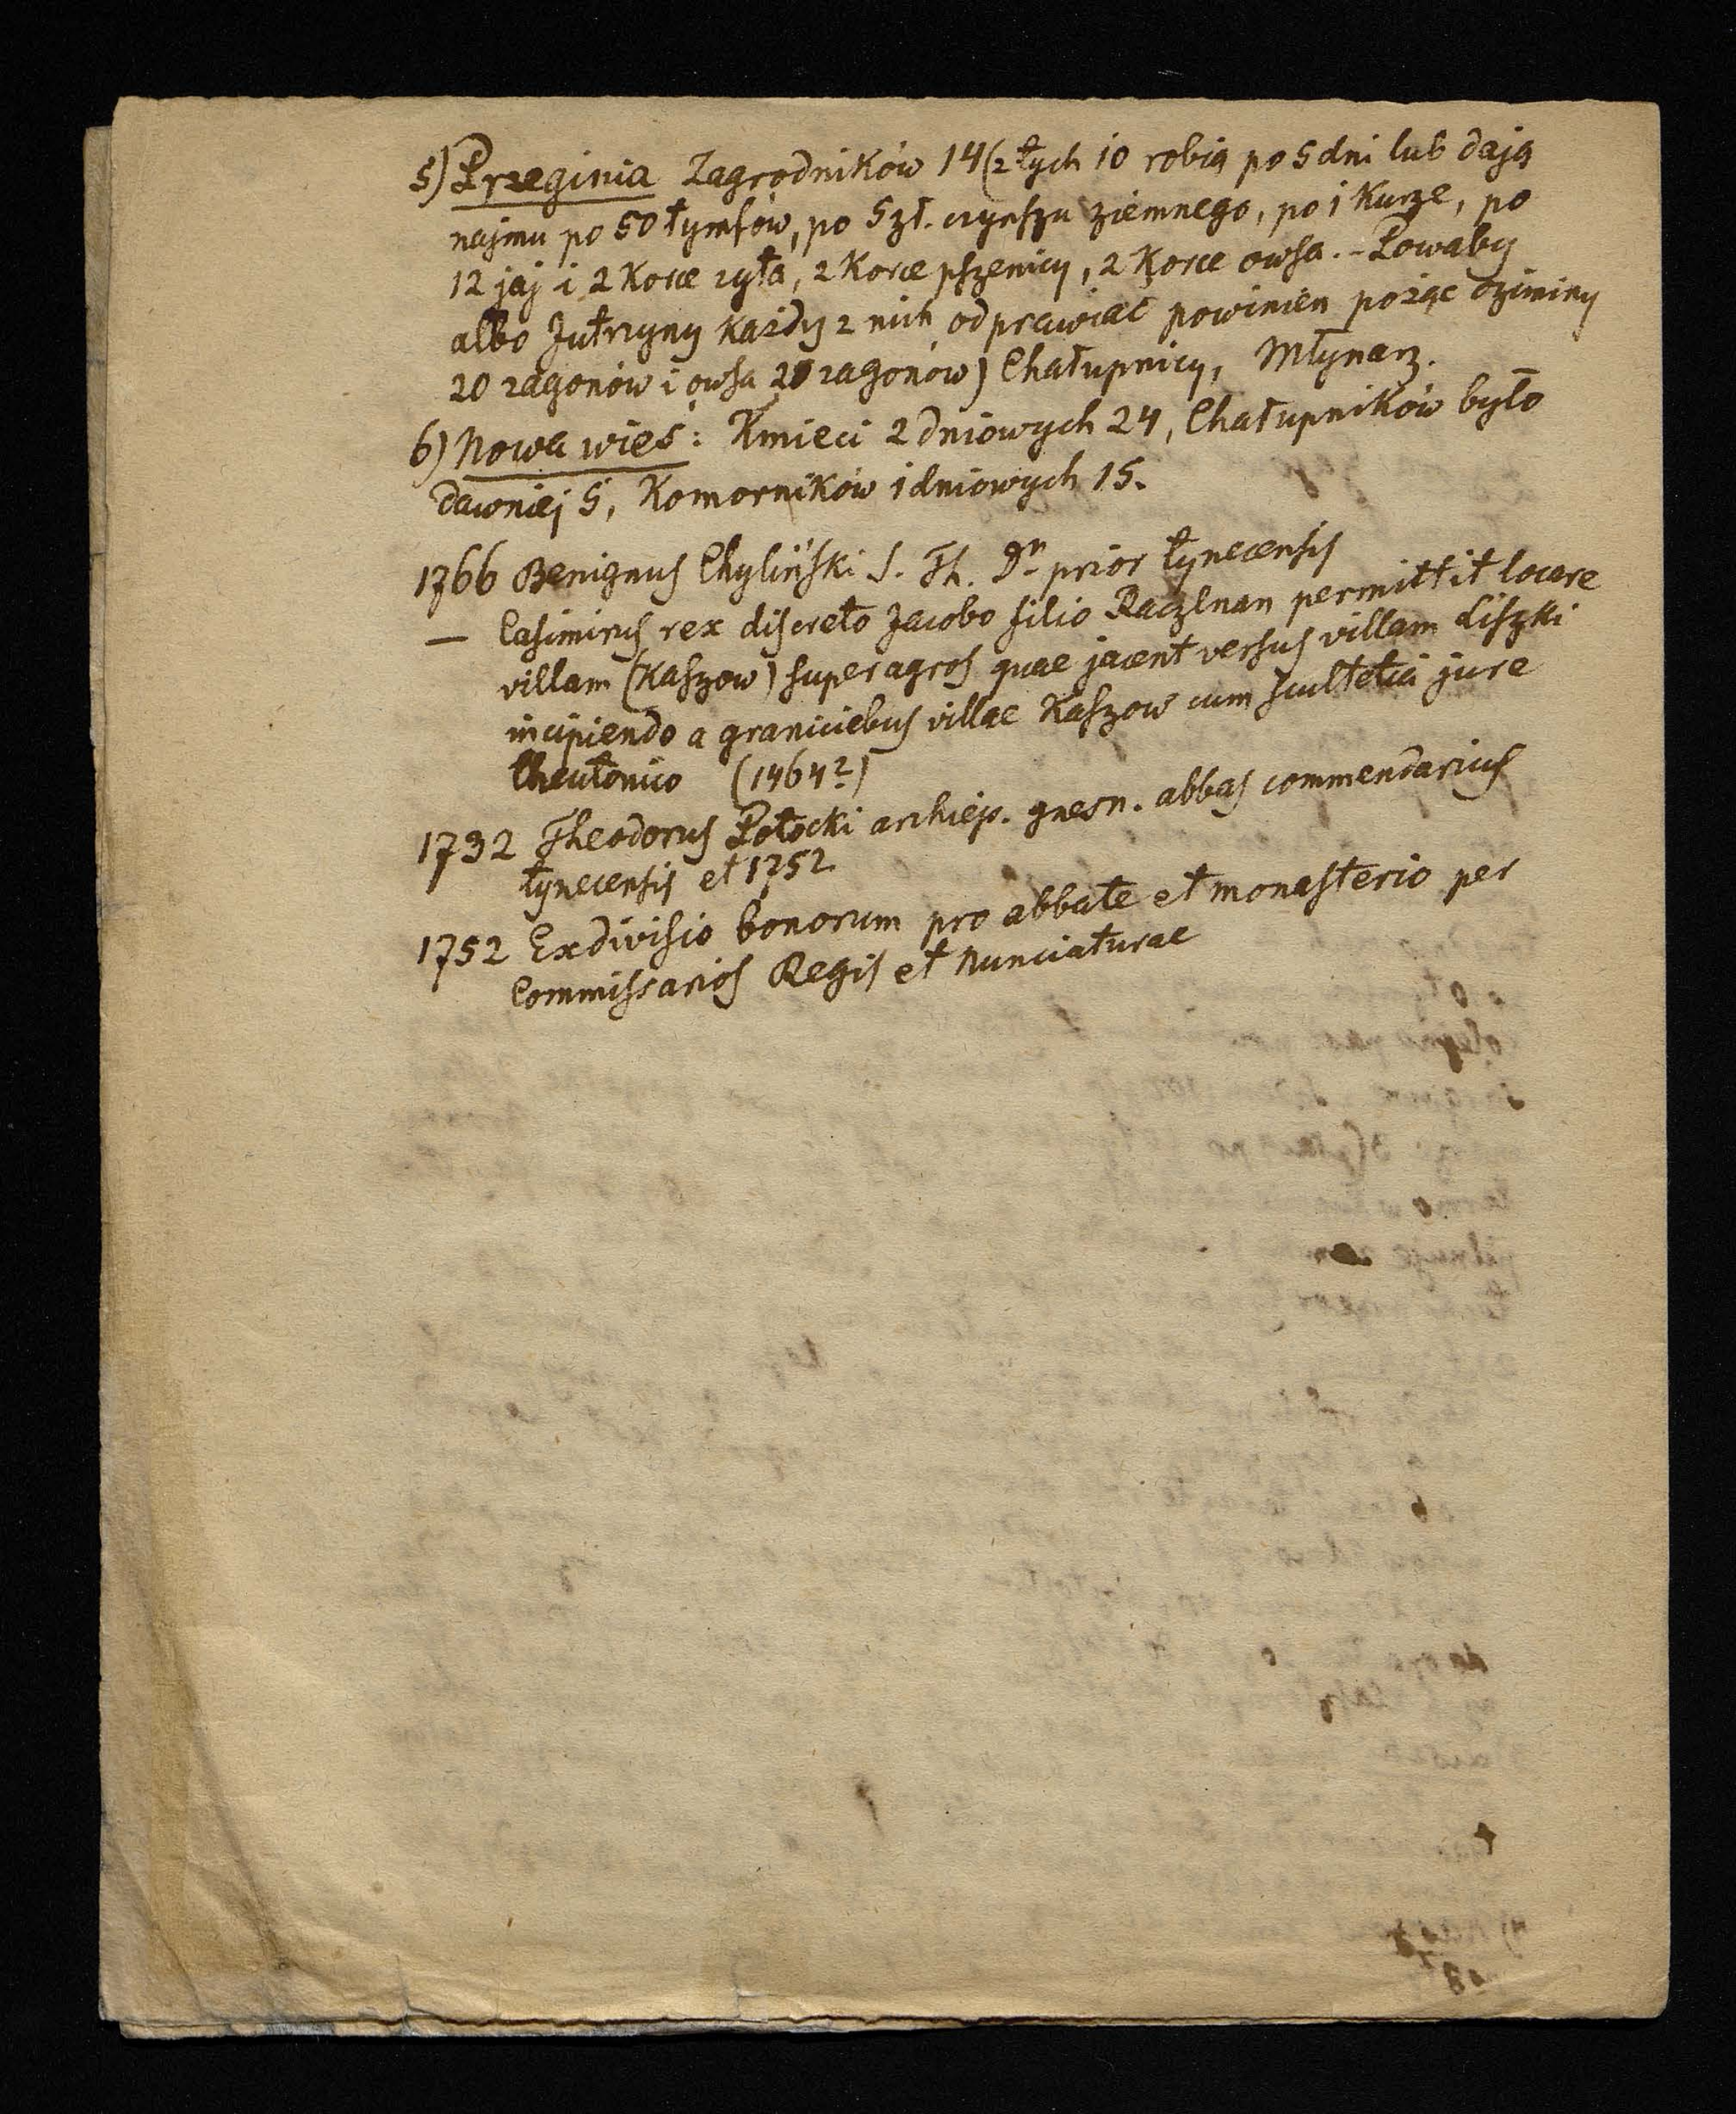 5) Przeginia Zagrodników 14 (z tych 10 robią po 5 dni lub dają
najmu po 50 tymfów, po 5 zł. czynszu ziemnego, po 1 Kurze, po
12 jaj i 2 Korce zyta, 2 Korce pszenicy, 2 Korce owsa. - Powaby
albo Jutrzyny Każdy z nich odprawiać powinien pożąć oziminy
20 zagonów i owsa 20 zagonów) Chałupnicy, Młynarz.
6) Nowa wieś: Kmieci 2 dniowych 24, Chałupników było
dawniej 5, Komorników 1 dniowych 15.
1766 Benignus Chyliński S. Th. Dr prior tynecensis
— Casimirus rex discreto Jacobo filio permittit locare
villam (Kaszow) super agros quae jacent versus villam Liszki
incipiendo a graniciebus villae Kaszow cum scultetia jure
theutonico (1464?)
1732 Theodorus Potocki archiep. gnesn. abbas commendarius
tynecensis et 1752
1752 Exdivisio bonorum pro abbate et monasterio per
Commissarios Regis et Nunciaturae